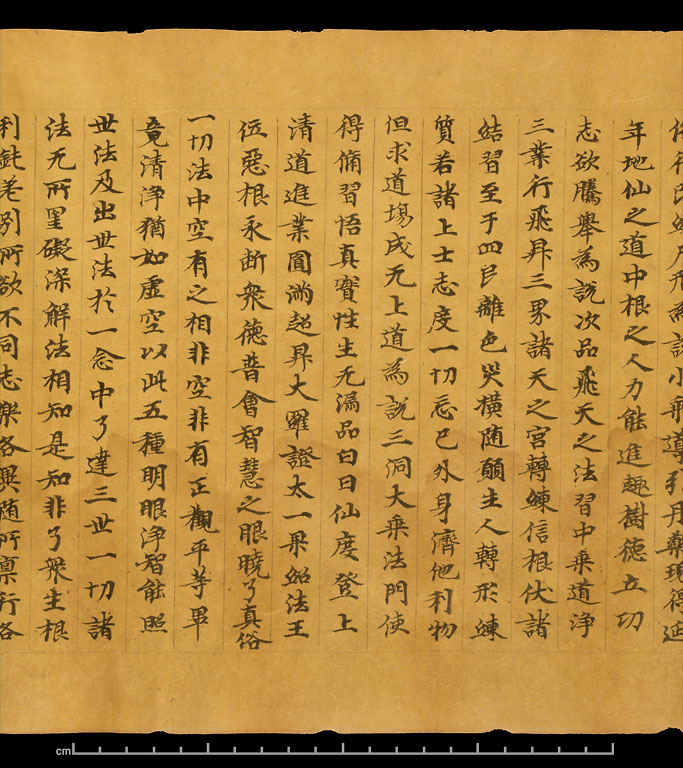 為說小飛導引丹藥現得延
年地仙之道中根之人力能進趣樹德立功
志欲騰舉為說次品飛天之法習中乘道淨
三業行飛昇三界諸天之宮轉鍊信根伏諸
結習至于四民離色灾橫随願生人轉形鍊
質若諸上士志度一切忘己外身濟他利物
但求道場成无上道為說三洞大乘法門使
得俻習悟真實性生无漏品白日仙度登上
清道進業圓滿超昇大羅證太一果始法王
位惡根永斷衆德普會智慧之眼曉了真俗
一切法中空有之相非空非有正觀平等畢
竟清淨猶如虛空以此五種明眼淨智能照
世法及出世法於一念中了達三世一切諸
法无所罣礙深解法相知是知非了衆生根
利鈍差別所欲不同志樂各異随所禀行各
cm